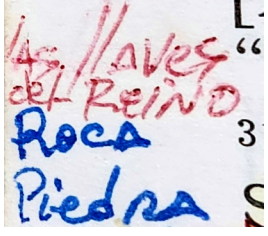 las llaves
del REINO
Roca
Piedra